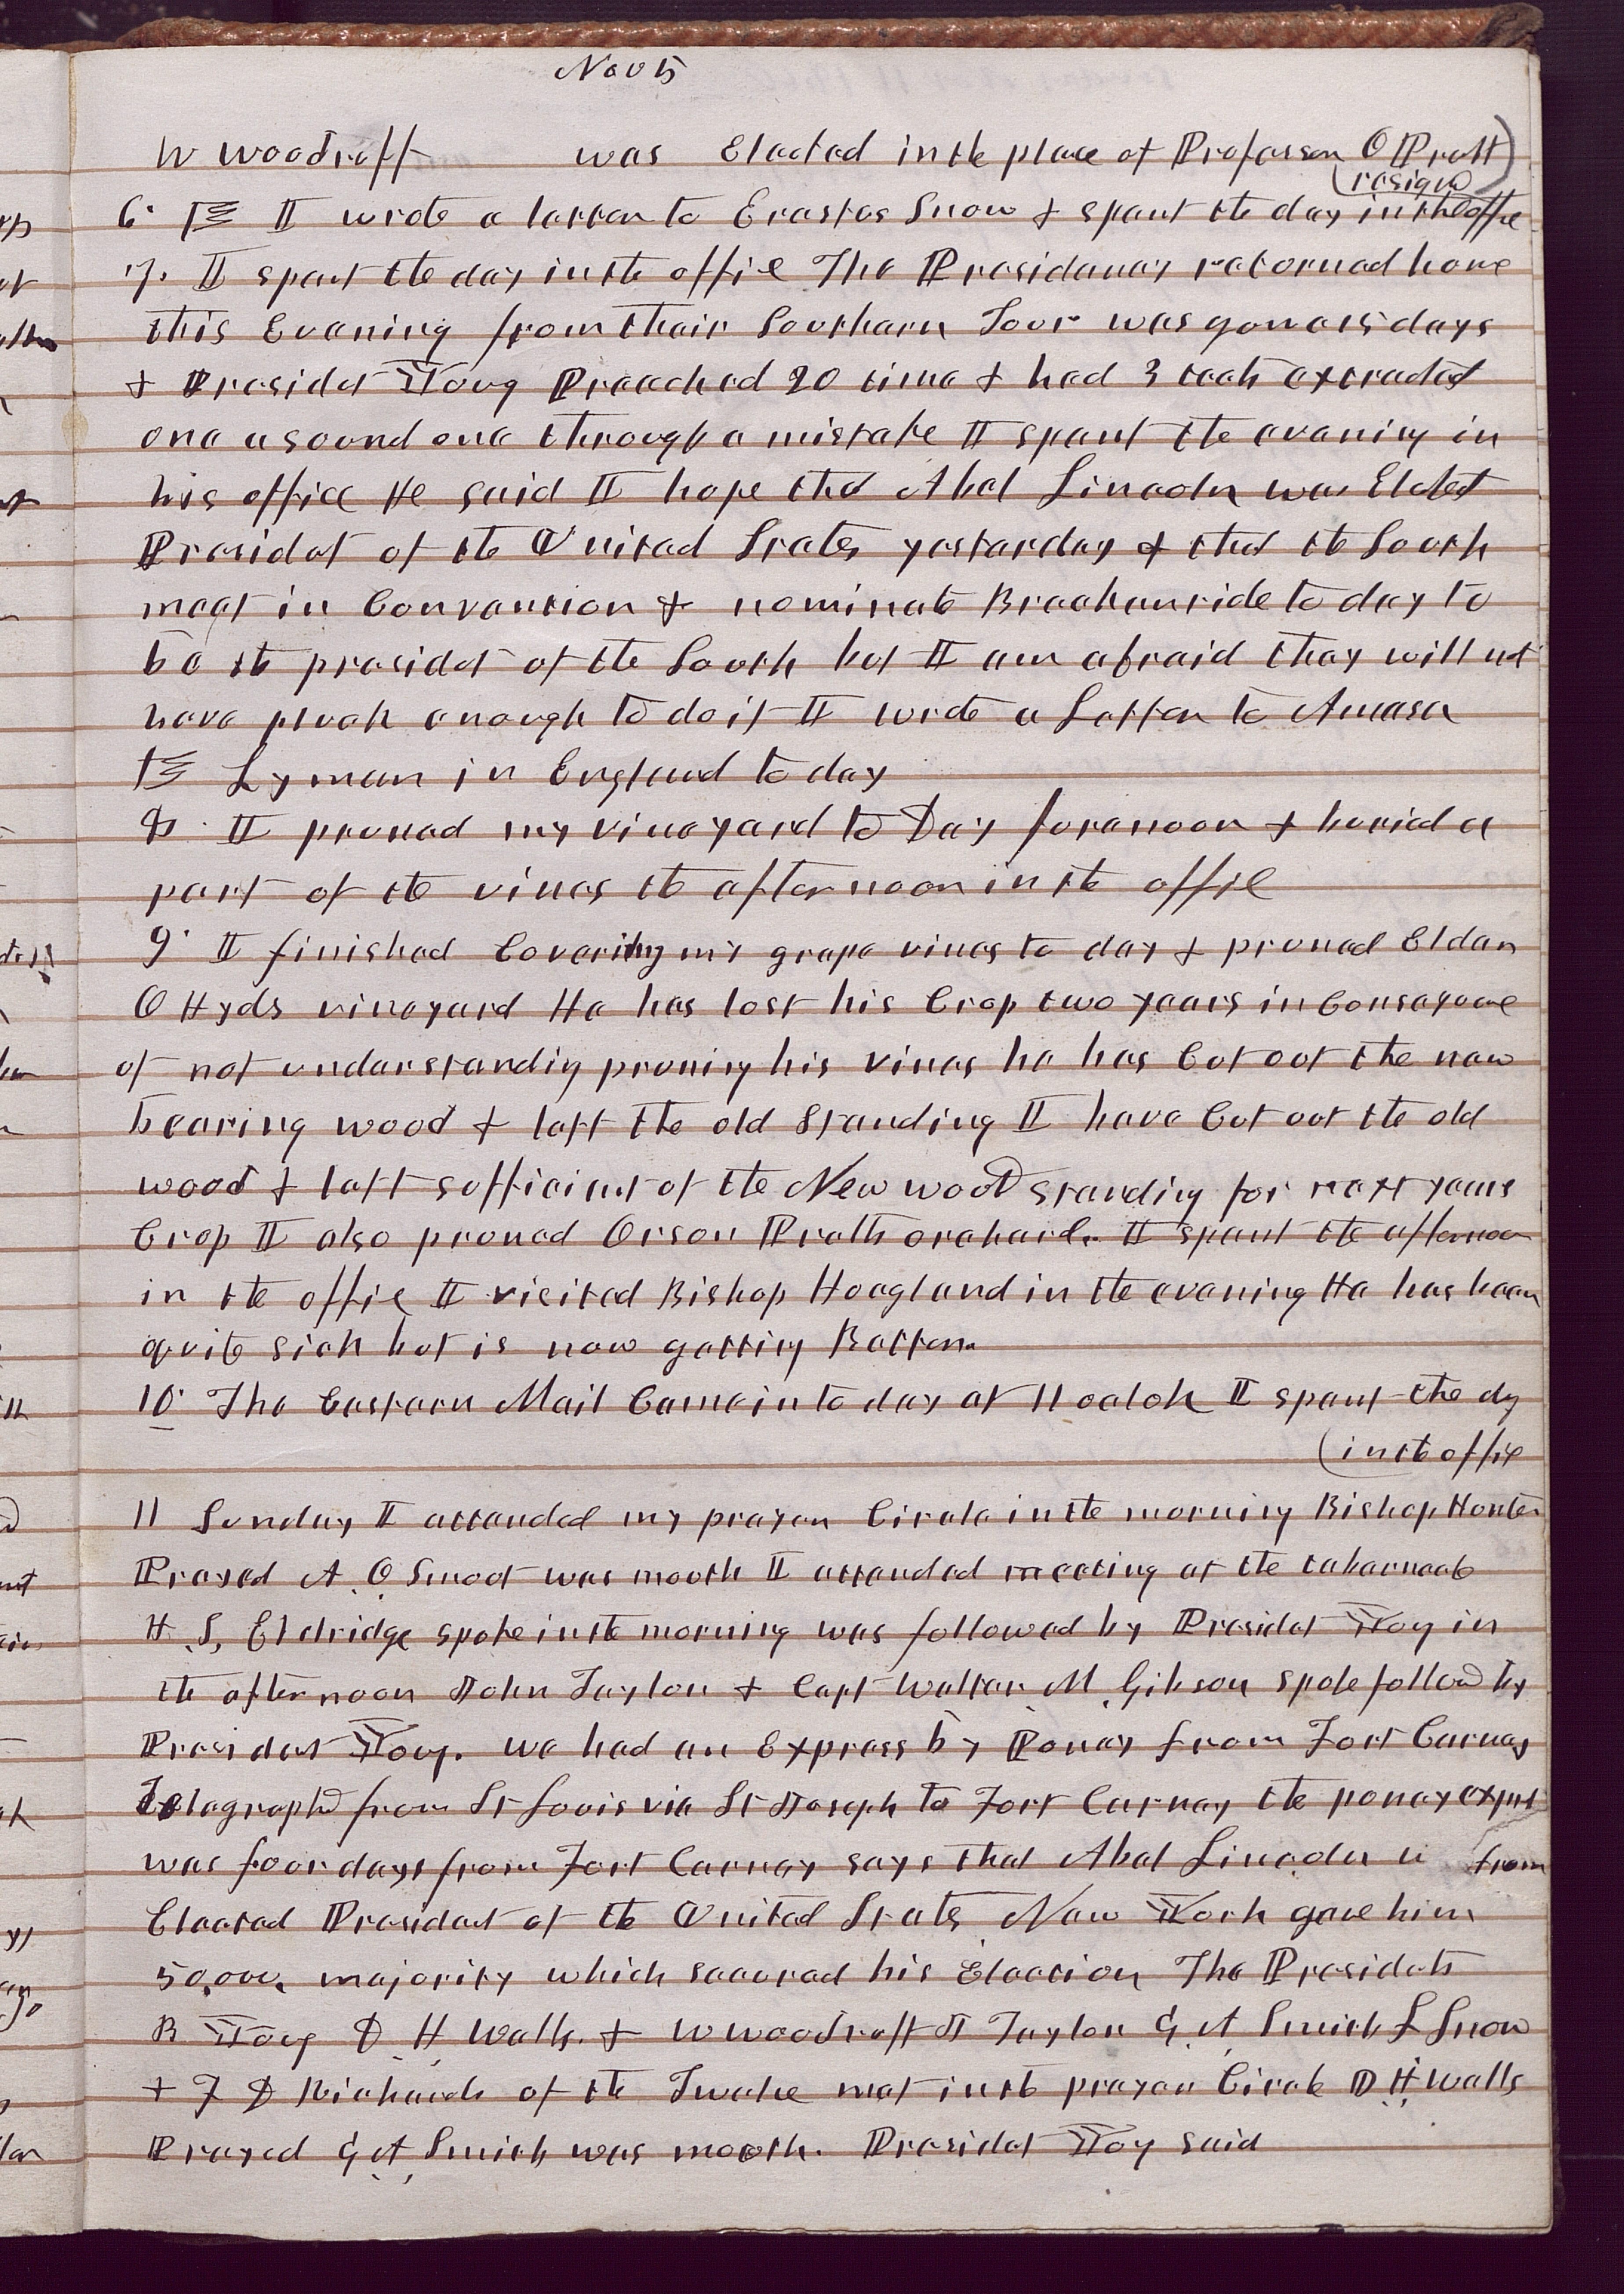 Nov 5
W Woodruff was Elected in the place of Professor O Pratt
(resigned)
6 I wrote a letter to Erastus Snow & spent the day in the office
7. I spent the day in the office The Presidency returned home
this Evening from their Southern Tour was gone days
& Presidet Young Preached 20 time & had 3 teeth extracted
one a sound one through a mistake I spent the evening in
his office He said I hope that Abel Lincoln was Elected
Presidet of the United States yesterday & that the South
meet in Convention & nominate Breckenride to day to
be the presidet of the South but I am afraid they will not
have pluck enough to do it I wrote a Letter to Amasa
Lyman in England to day
8. I pruned my vineyard to Day forenoon & buried a
part of the vines the afternoon in the office
9 I finished Covering my grape vines to day & pruned Elder
O Hyds vineyard He has lost his Crop two years in Consequence
of not understanding pruning his vines he has Cut out the new
bearing wood & left the old Standing I have Cut out the old
wood & left sufficient of the New wood standing for next years
Crop I also pruned Orson Pratts orchard. I spent the afternoon
in the office I visited Bishop Hoagland in the evening He has been
quite sick but is now getting Better.
10 The Eastern Mail Came in to day at 11 oclok I spent the dy
(in the office
11 Sunday I attended my prayer Circle in the morning Bishop Hunter
Prayed A. O Smoot was mouth I attended meeting at the tabernacle
H. S, Eldridge spoke in the morning was followed by Presidet Young in
the afternoon John Taylor & Capt Walter M. Gibson spoke followed by
Presidet Young. We had an Express by Poney from Fort Carney
Telegraphed from St Louis via St Joseph to Fort Carney the poney express
was four days from Fort Carney says that Abel Lincoln from
Elected Presidet of the United States New York gave him
50,000, majority which secured his Election The Presidets
B Young D. H Wells. & W Woodruff J Taylor G. A Smith L Snow
& F D Richards of the Twelve met in the prayer Circle D. H Wells
Prayed G. A Smith was mouth. Presidet Young said